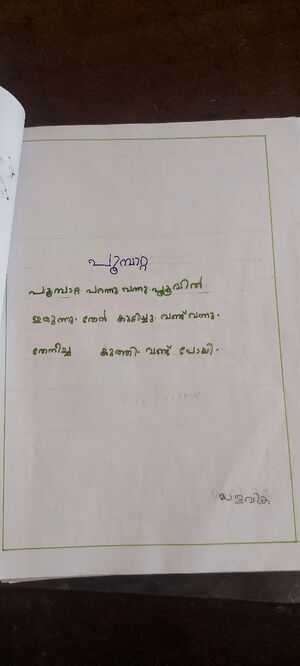 പൂമ്പാറ്റ
പൂമ്പാറ്റ പറന്നു വന്നു. പൂവിൽ
ഇരുന്നു. തേൻ കുടിച്ചു. വണ്ട് വന്നു.
തേനീച്ച കുത്തി. വണ്ട് പോയി.